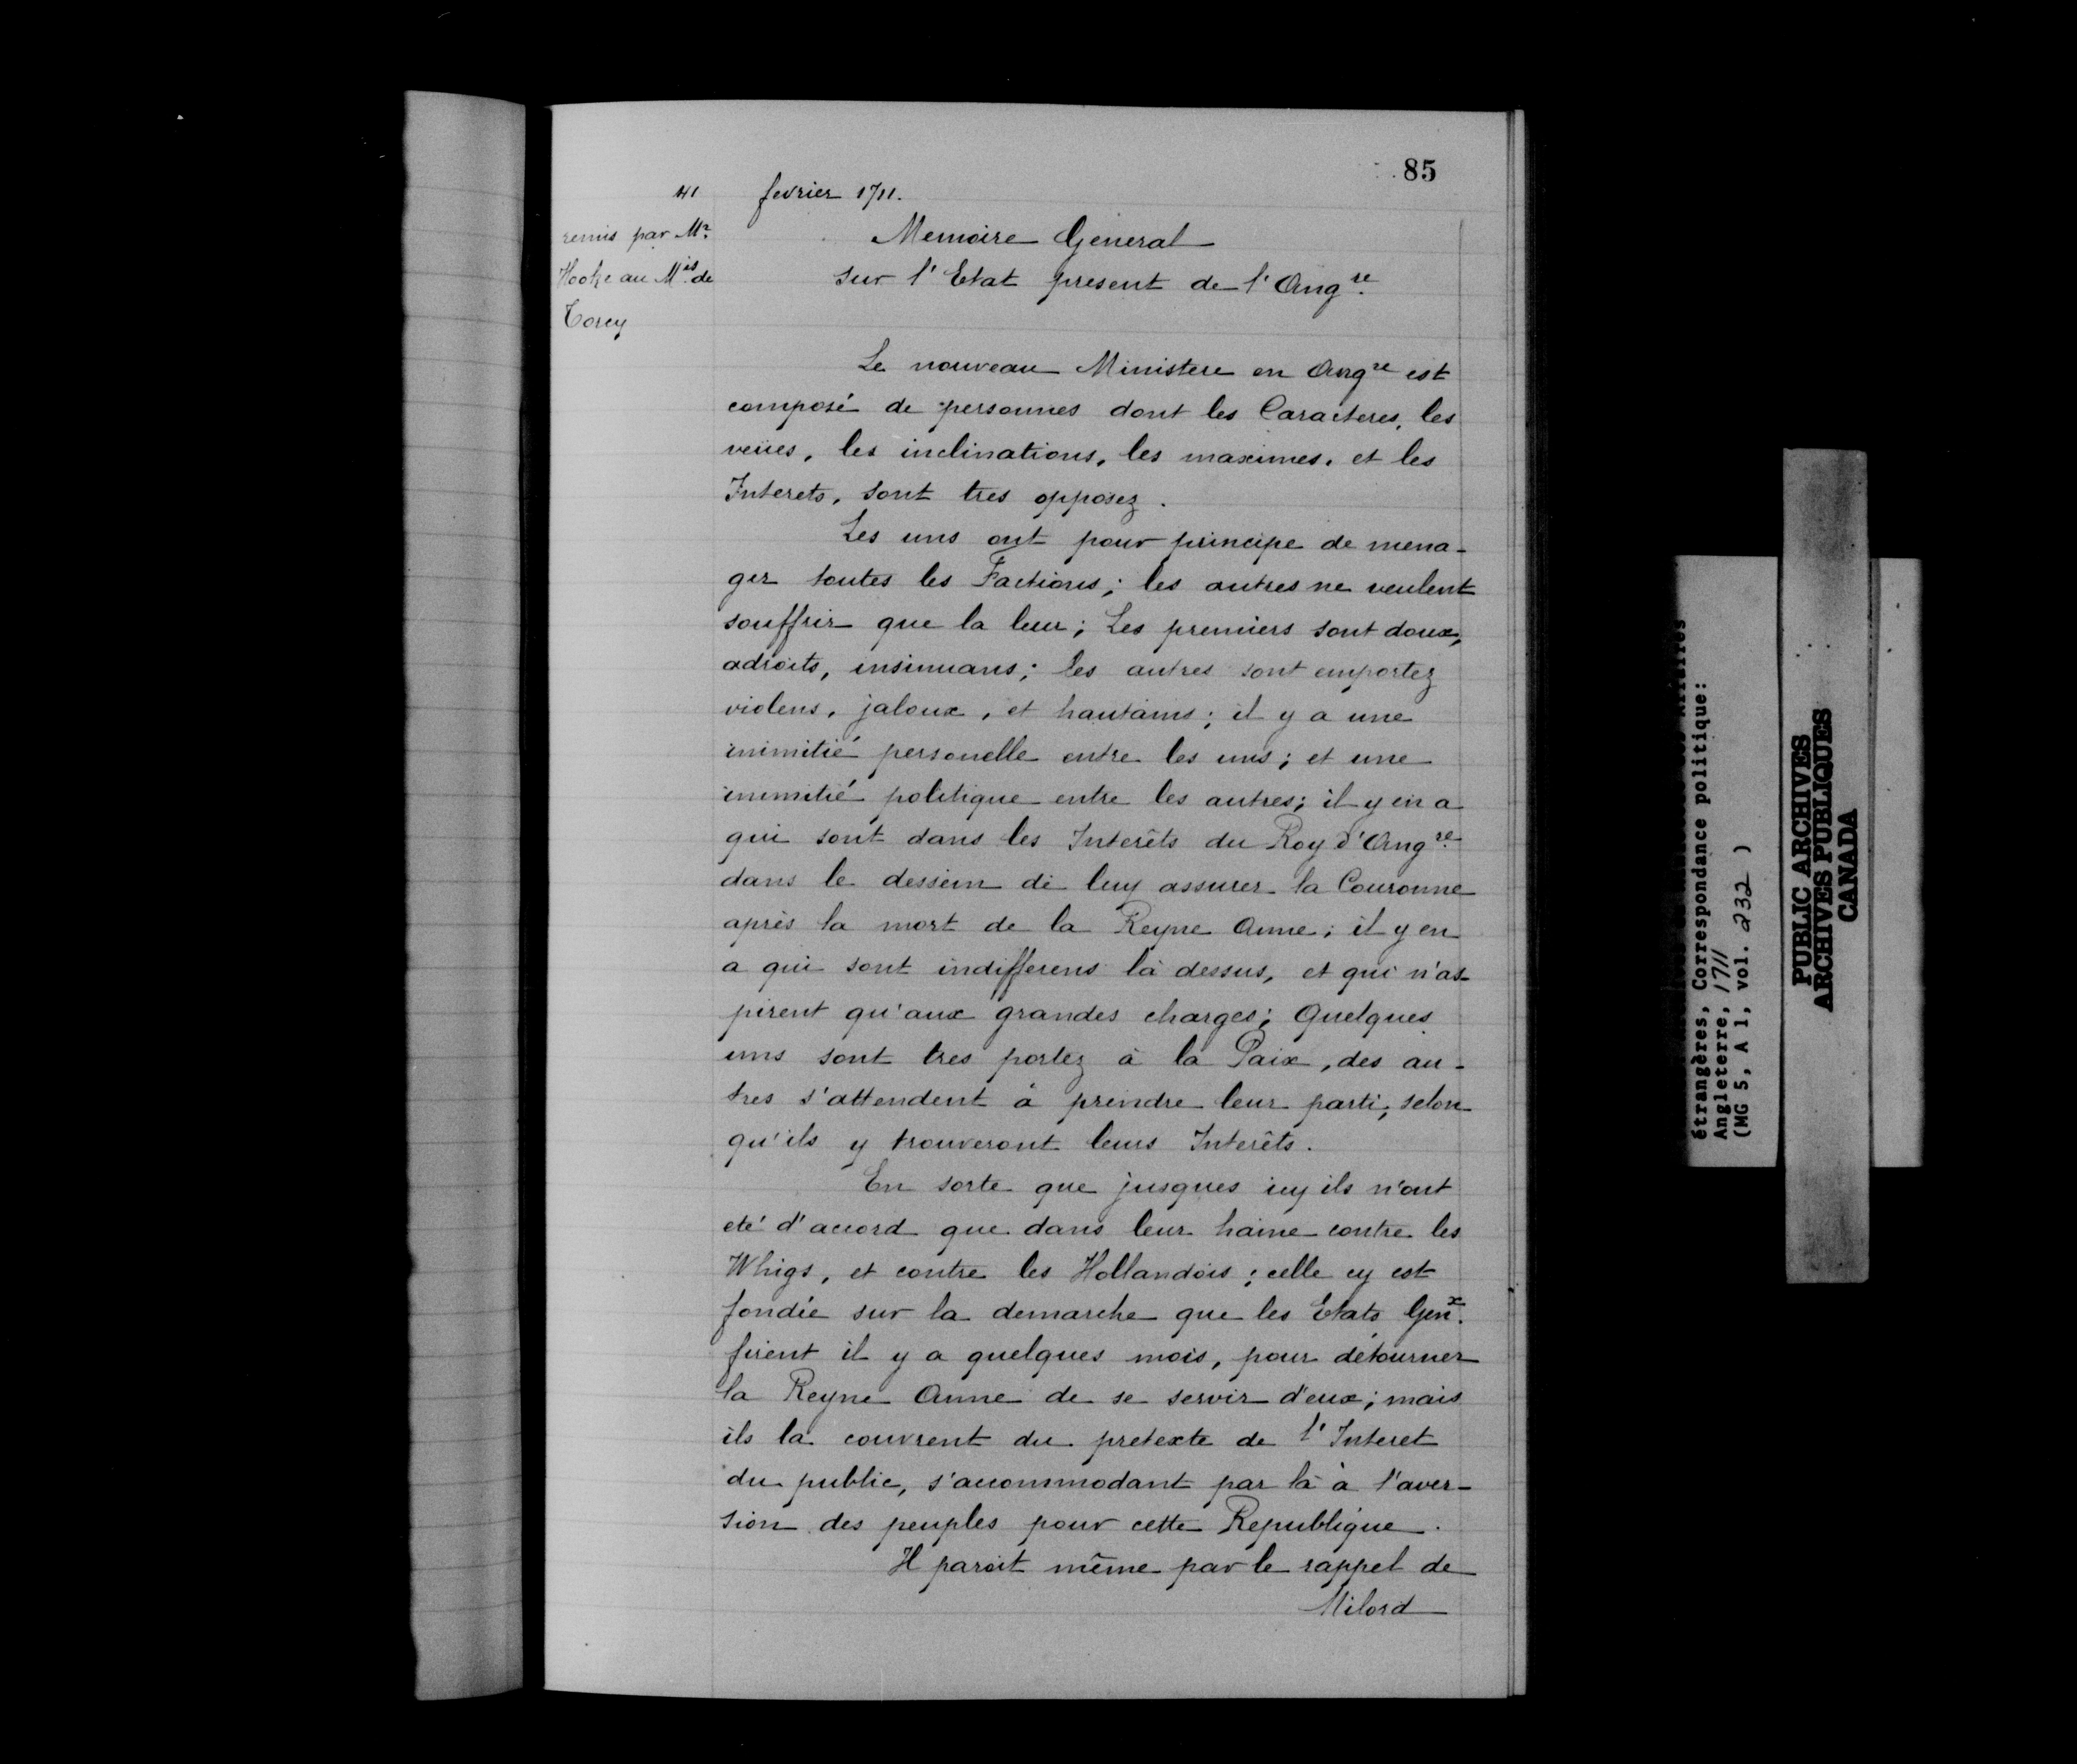 85
41 fevrier 1711.
remis par Mr.
Hooke au Mis. de
Torcy
Memoire General
sur l'Etat present de l'Angre.
Le nouveau Ministere en Angre est
composé de personnes dont les Caracteres, les
veües, les inclinations, les maximes, et les
Interets, sont tres opposez.
Les uns ont pour principe de mena-
ger toutes les Factions; les autres ne veulent
souffrir que la leur; Les premiers sont doux,
adroits, insinuans; les autres sont emportez
violens, jaloux, et hautains; il y a une
inimitié personelle entre les uns; et une
inimitié politique entre les autres; il y en a
qui sont dans les Interêts du Roy d'Angre.
dans le dessein de luy assurer la Couronne
après la mort de la Reyne Anne; il y en
a qui sont indifferens là dessus, et qui n'as-
pirent qu'aux grandes charges; Quelques
uns sont tres portez à la Paix, des au-
tres s'attendent à prendre leur parti, selon
qu'ils y trouveront leurs Interêts.
En sorte que jusques icy ils n'ont
eté d'accord que dans leur haine contre les
Whigs, et contre les Hollandois; celle cy est
fondée sur la demarche que les Etats Genx.
firent il y a quelques mois, pour détourner
la Reyne Anne de se servir d'eux; mais
ils la couvrent du pretexte de l'Interet
du public, s'accommodant par là à l'aver-
sion des peuples pour cette Republique.
Il paroit même par le rappel de
Milord
étrangères, Correspondance politique:
Angleterre, 1711
(MG 5, A 1, vol. 232 )
PUBLIC ARCHIVES
ARCHIVES PUBLIQUES
CANADA